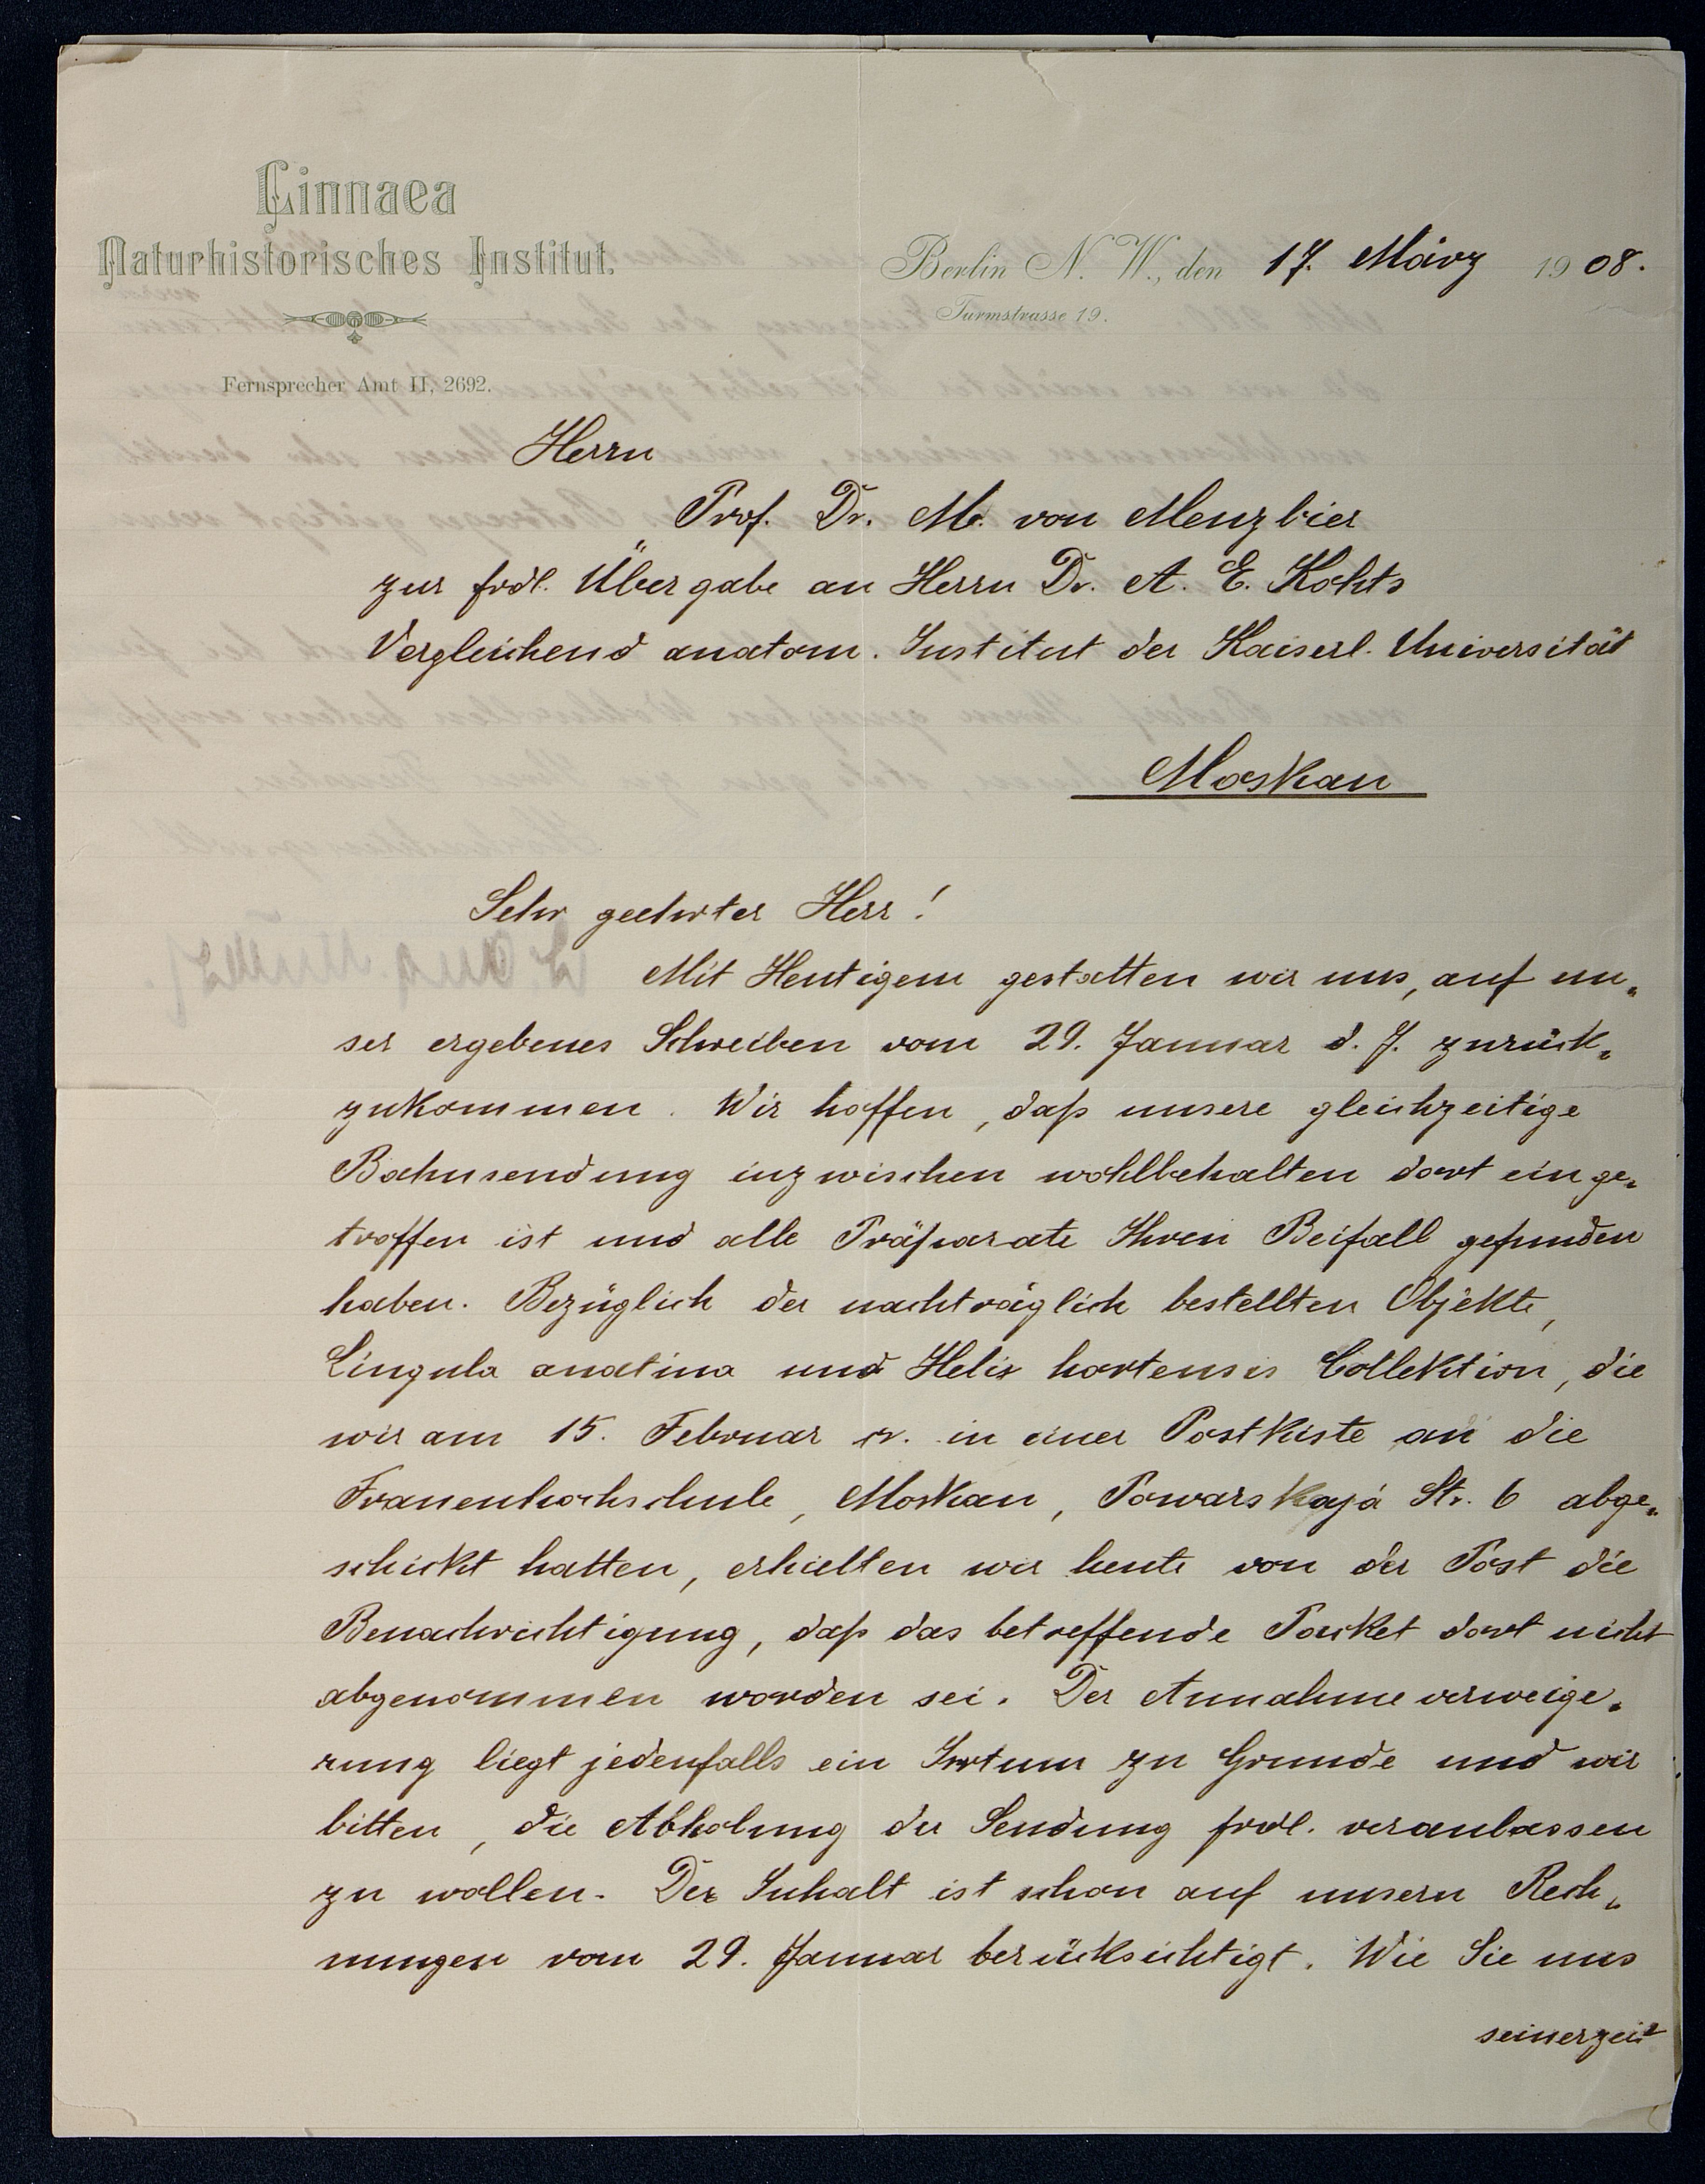 Linnaea
Naturhistorisches Institut.
Berlin N. W., den 17. März 1908.
Turmstrasse 19.
Fernsprecher Amt II, 2692.
Herrn
Prof. Dr. M. von Menzbier
zur frdl. Übergabe an Herrn Dr. A. E. Kohts
Vergleichend anatom. Institut der Kaiserl. Universität
Moskau
Sehr geehrter Herr!
Mit Heutigem gestatten wir uns, auf un„
ser ergebenes Schreiben vom 29. Januar d. J. zurück„
zukommen. Wir hoffen, daß unsere gleichzeitige
Bahnsendung inzwischen wohlbehalten dort einge„
troffen ist und alle Präparate Ihren Beifall gefunden
haben. Bezüglich der nachträglich bestellten Objekte,
Lingula anatina und Helix hortensis Collektion, die
wir am 15. Februar cr. in einer Postkiste an die
Frauenhochschule, Moskau, Powarskaja Str. 6 abge„
schickt hatten, erhielten wir heute von der Post die
Benachrichtigung, daß das betreffende Packet dort nicht
abgenommen worden sei. Der Annahmeverweige„
rung liegt jedenfalls ein Irrtum zu Grunde und wir
bitten, die Abholung der Sendung frdl. veranlassen
zu wollen. Der Inhalt ist schon auf unsern Rech„
nungen vom 29. Januar berücksichtigt. Wie Sie uns
seinerzeit